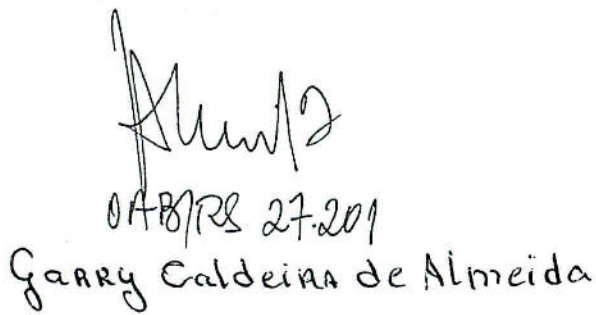 OAB/RS 27.201
Garry Caldeira de Almeida